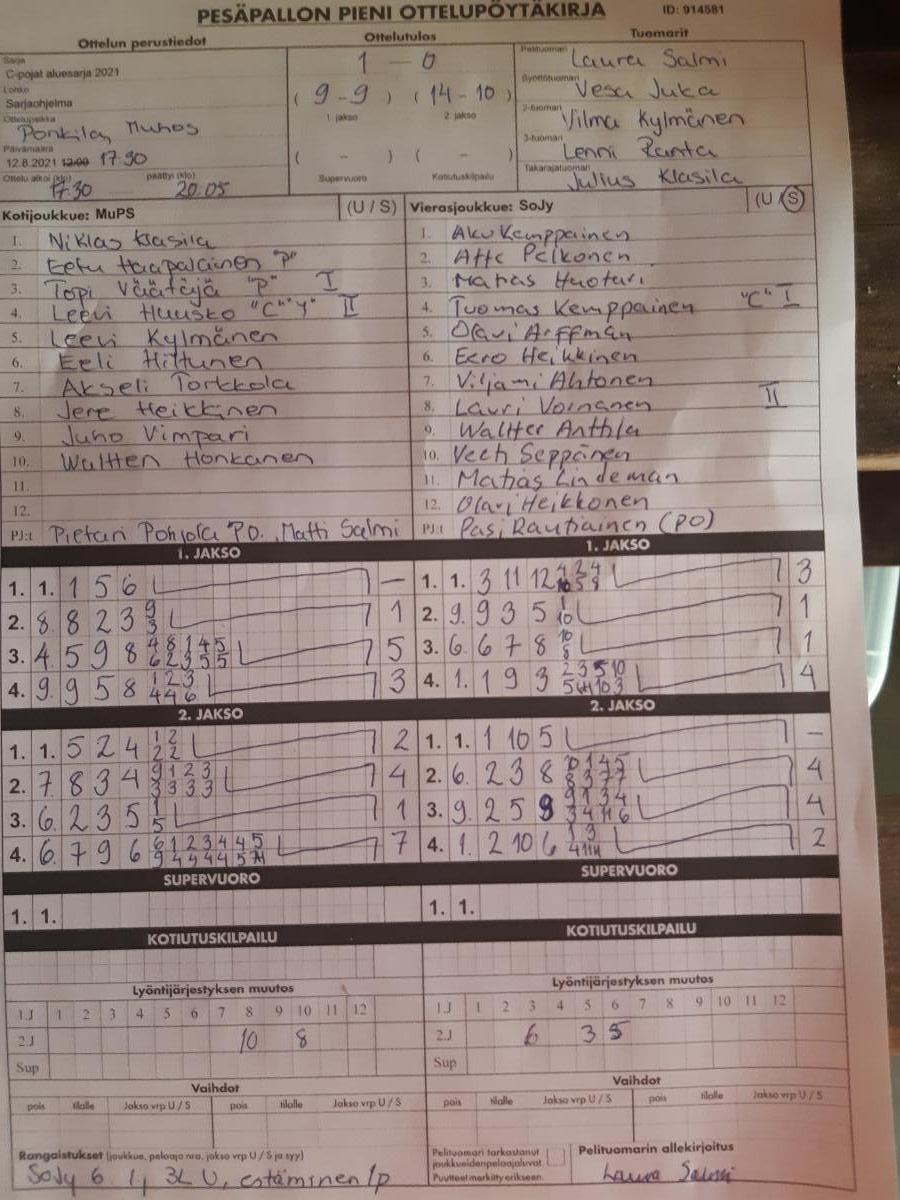 PESÄPALLON PIENI OTTELUPÖYTÄKIRJA ID: 914581
Ottelun perustiedot Ottelutulos Tuomarit
Sarja
C-pojat aluesarja 2021
Lohko
Sarjaohjelma
Ottelupaikka
Ponkila, Muhos
Päivämäärä
12.8.2021 12:00 17 30
Ottelu alkoi (klo) päättyi (klo)
17.30 20.05
1 - 0
( 9 - 9 ) ( 14 - 10 )
1. jakso 2. jakso
( - ) ( - )
Supervuoro Kotiutuskilpailu
Pelituomari Laura Salmi
Syöttötuomari Vesa Juka
2-tuomari Vilma Kylmänen
3-tuomari Lenni Ranta
Takarajatuomari Julius Klasila
Kotijoukkue: MuPS (U / S)
1. Niklas Klasila
2. Eetu Haapalainen "P"
3. Topi Väätäjä "P" I
4. Leevi Huusko "C" "Y" II
5. Leevi Kylmänen
6. Eeli Hiltunen
7. Akseli Torkkola
8. Jere Heikkinen
9. Juho Vimpari
10. Waltteri Honkanen
11.
12.
PJ:t Pietari Pohjola P.O. , Matti Salmi
Vierasjoukkue: SoJy (U / S)
1. Aku Kemppainen
2. Atte Pelkonen
3. Matias Huotari
4. Tuomas Kemppainen "C" I
5. Olavi Arffman
6. Eero Heikkinen
7. Viljami Ahtonen
8. Lauri Voinanen II
9. Waltter Anthla
10. Veeti Seppänen
11. Matias Lindeman
12. Olavi Heikkonen
PJ:t Pasi Rautiainen (PO)
1. JAKSO
1. 1. 1 5 6 —
2. 8. 8 2 3 9 3 1
3. 4. 5 9 8 4 8 1 4 5 6 2 3 5 5 5
4. 9. 9 5 8 1 2 3 4 4 6 3
1. JAKSO
1. 1. 3 11 12 3
2. 9. 9 3 5 1 10 1
3. 6. 6 7 8 10 8 1
4. 1. 1 9 3 2 3 5 10 4
2. JAKSO
1. 1. 5 2 4 1 2 2 2 2
2. 7. 8 3 4 9 1 2 3 3 3 3 3 4
3. 6. 2 3 5 1 5 1
4. 6. 7 9 6 6 1 2 3 4 4 5 7
2. JAKSO
1. 1. 1 10 5 —
2. 6. 2 3 8 4
3. 9. 2 5 9 9 1 3 4 4
4. 1. 2 10 6 1 3 2
SUPERVUORO
1. 1.
SUPERVUORO
1. 1.
KOTIUTUSKILPAILU
KOTIUTUSKILPAILU
Lyöntijärjestyksen muutos
1.J 1 2 3 4 5 6 7 8 9 10 11 12
2.J 10 8
Sup
Lyöntijärjestyksen muutos
1.J 1 2 3 4 5 6 7 8 9 10 11 12
2.J 6 3 5
Sup
Vaihdot
pois tilalle Jakso vrp U / S pois tilalle Jakso vrp U / S
Vaihdot
pois tilalle Jakso vrp U / S pois tilalle Jakso vrp U / S
Rangaistukset (joukkue, pelaaja nro, jakso vrp U / S ja syy)
SoJy 6 1j 3L U, estäminen 1p
Pelituomari tarkastanut
joukkueiden pelaajaluvat
Puutteet merkitty erikseen.
Pelituomarin allekirjoitus
Laura Salmi